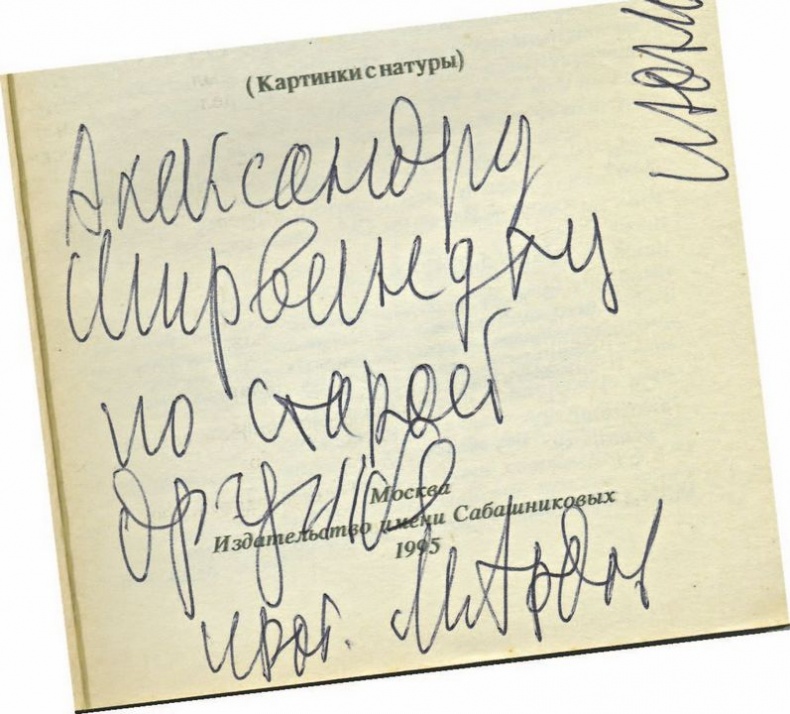 (Картинки с натуры)
Александру
Ширвиндту
по старой
дружбе
Москва
Издательство имени Сабашниковых
1995
прот. М Ардов